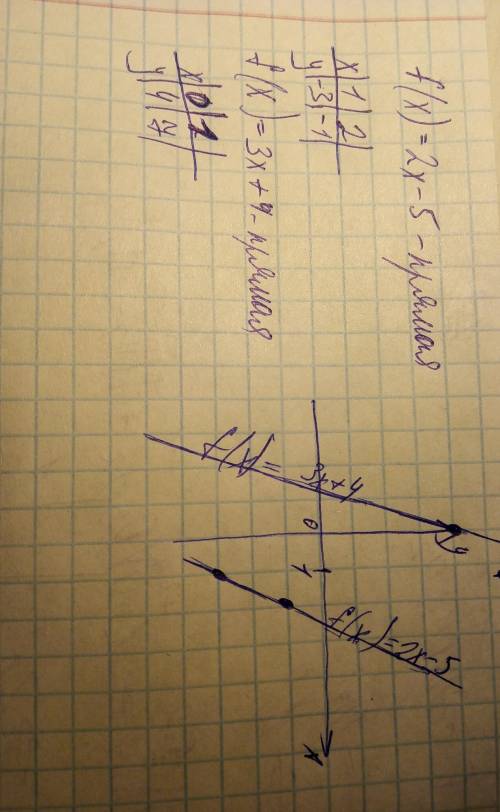 f(x) = 2x - 5 - прямая
x | 1 | 2
y | -3 | -1
f(x) = 3x + 4 - прямая
x | 0 | 1
y | 4 | 7
f(x) = 3x + 4
4
0
1
x
f(x) = 2x - 5